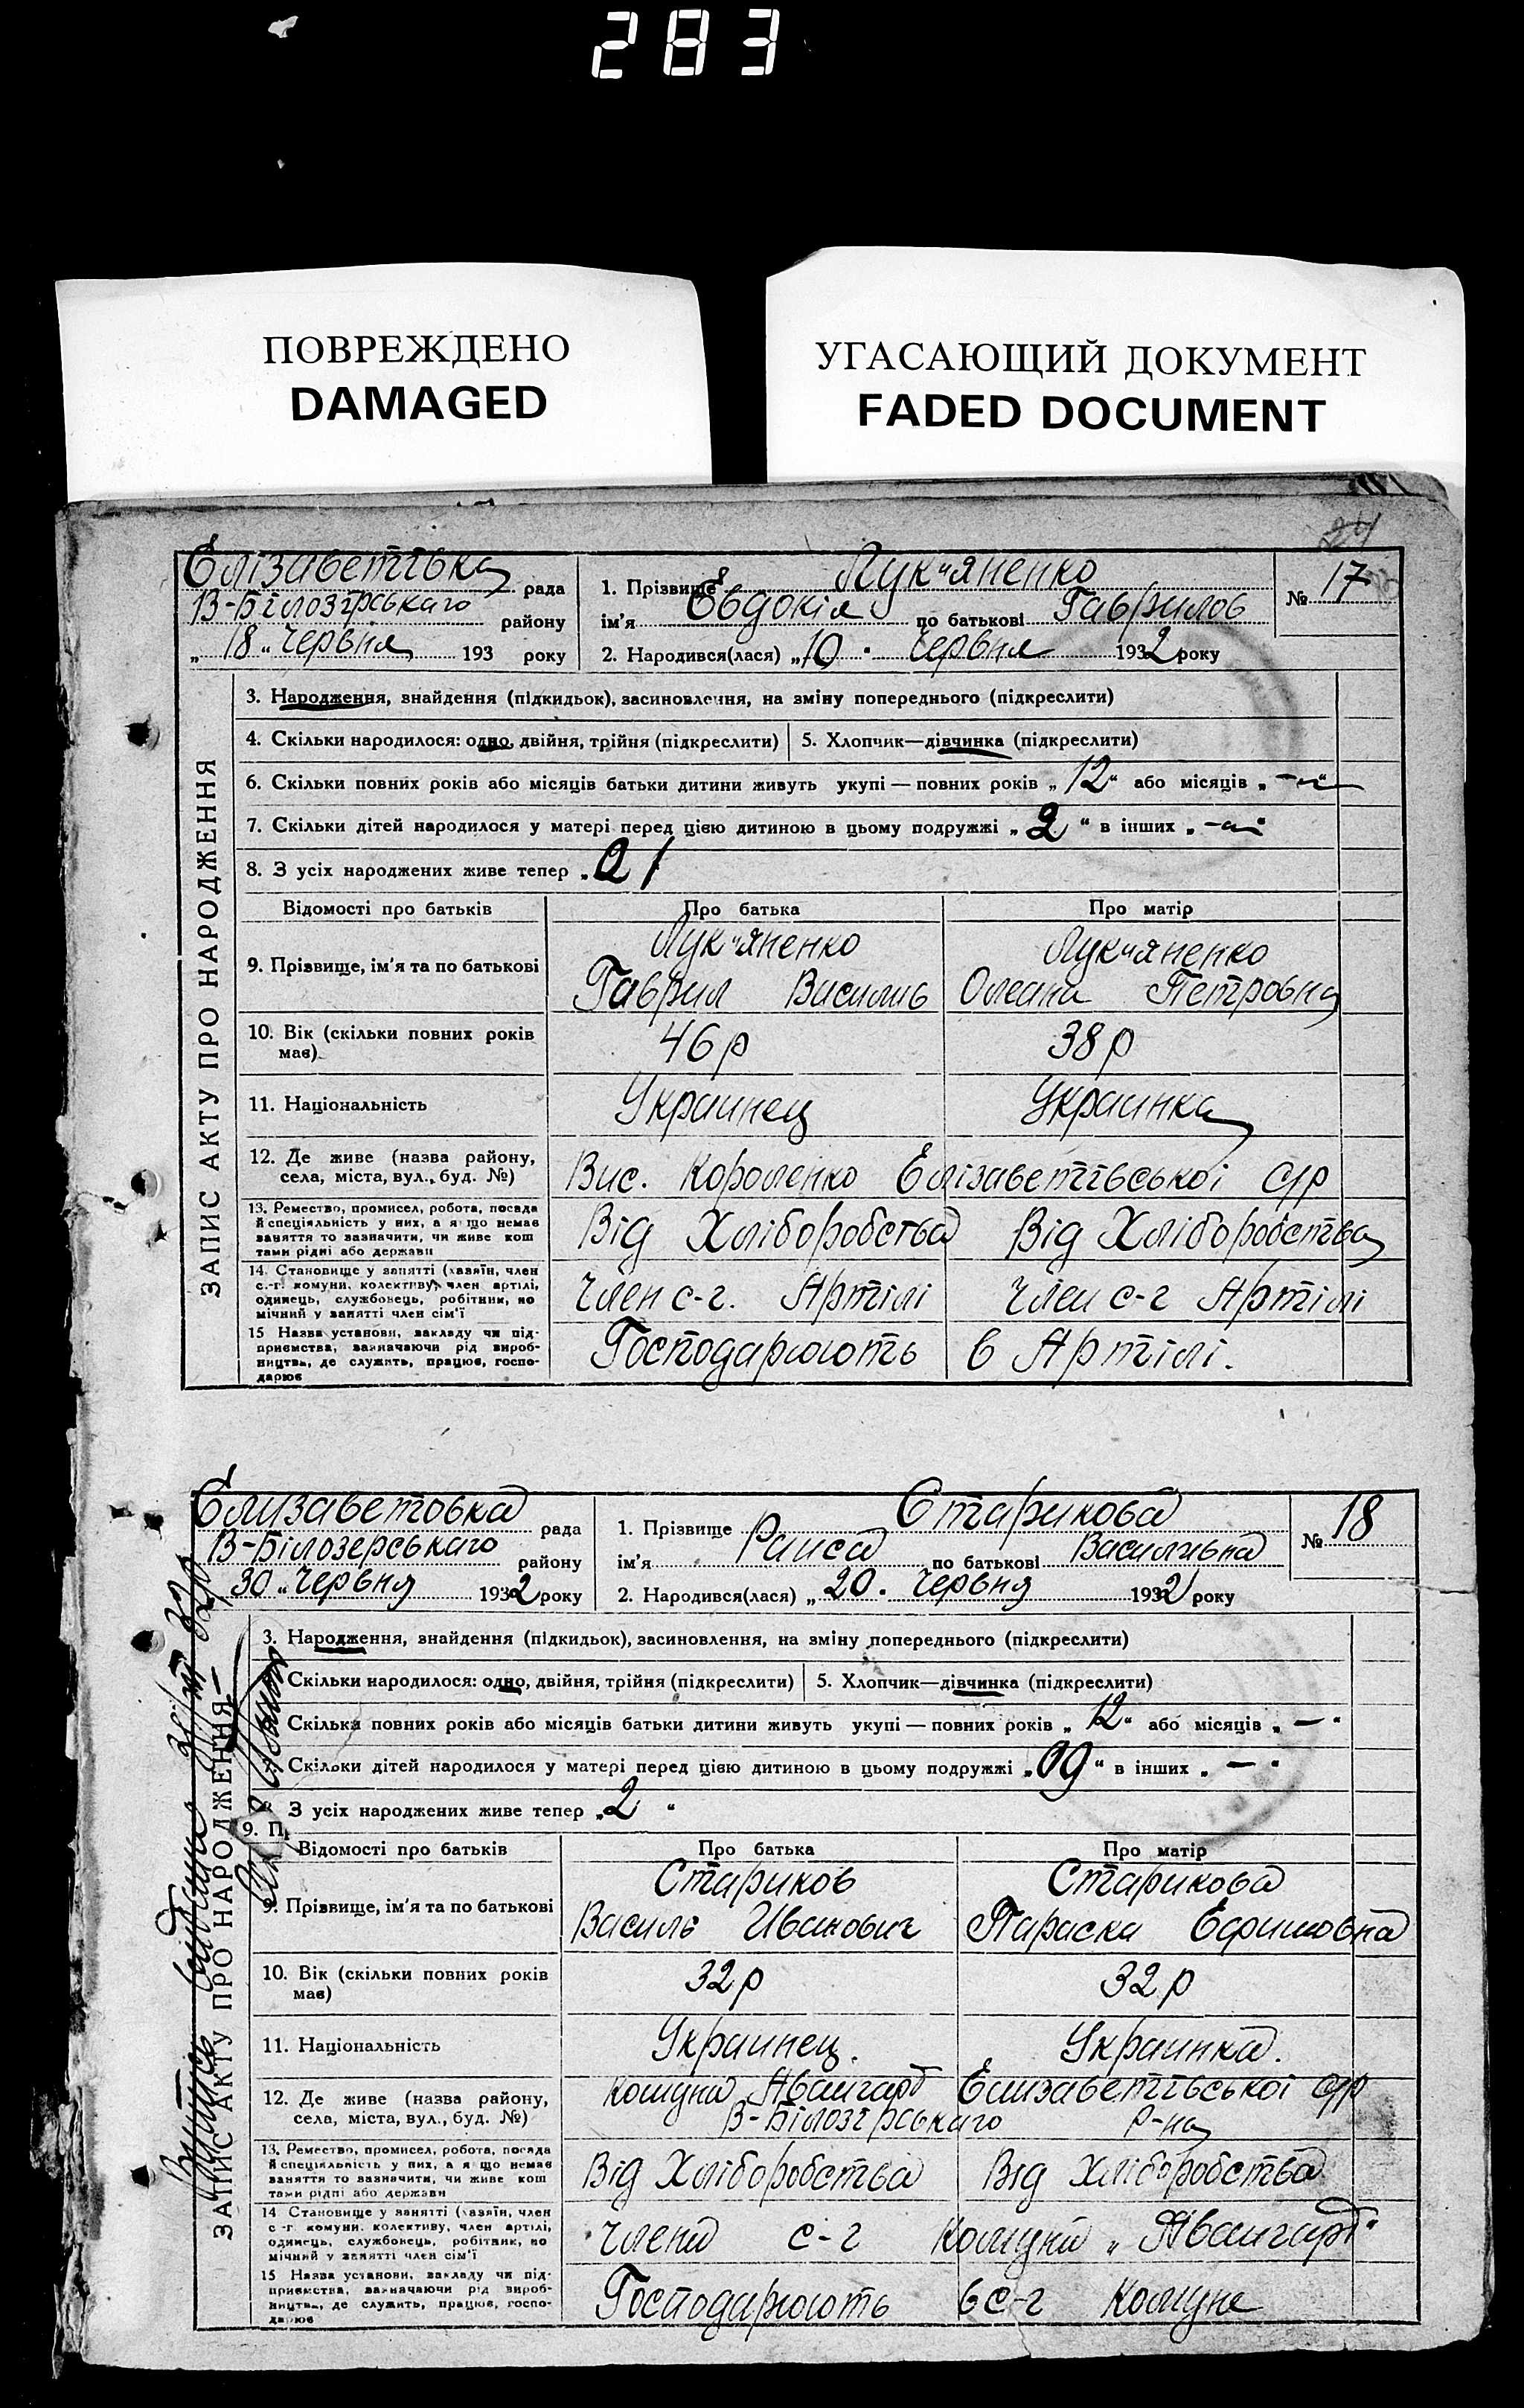 283
ПОВРЕЖДЕНО
DAMAGED
УГАСАЮЩИЙ ДОКУМЕНТ
FADED DOCUMENT
24
Єлізаветівка рада
В-Білозірськаго району
„ 18 “ Червня 193 року
1. Прізвище Лук'яненко
ім'я Євдокія по батькові Гаврилов
2. Народився(лася) „ 10 “ Червня 1932 року
№ 17
ЗАПИС АКТУ ПРО НАРОДЖЕННЯ
3. Народження, знайдення (підкидьок), засиновлення, на зміну попереднього (підкреслити)
4. Скільки народилося: одно, двійня, трійня (підкреслити) 5. Хлопчик—дівчинка (підкреслити)
6. Скільки повних років або місяців батьки дитини живуть укупі — повних років „ 12 “ або місяців „ — “
7. Скільки дітей народилося у матері перед цією дитиною в цьому подружжі „ 2 “ в інших „ — “
8. З усіх народжених живе тепер „
Відомості про батьків Про батька Про матір
9. Прізвище, ім'я та по батькові
Лук'яненко Лук'яненко
Гаврил Василь Олеана Петровна
10. Вік (скільки повних років має) 46 р 38 р
11. Національність Украинец Украинка
12. Де живе (назва району, села, міста, вул., буд. №) Вис. Короленко Єлізаветівської с/р
13. Ремество, промисел, робота, посада
й спеціяльність у них, а якщо немає
заняття то зазначити, чи живе кош
тами рідні або держави
Від Хліборобства Від Хліборобства
14. Становище у занятті (хазяїн, член
с.-г. комуни, колективу, член артілі,
одинець, службовець, робітник, по
мічний у занятті член сім'ї
Член с-г. Артілі Член с-г Артілі
15 Назва установи, закладу чи під-
приємства, зазначаючи рід вироб-
ництва, де служить, працює, госпо-
дарює
Господарюють в Артілі.
Єлизаветовка рада
В-Білозерськаго району
30 „ Червня 1932 року
1. Прізвище Старикова
ім'я Раиса по батькові Василивна
2. Народився(лася) „ 20. Червня 1932 року
№ 18
ЗАПИС АКТУ ПРО НАРОДЖЕННЯ
3. Народження, знайдення (підкидьок), засиновлення, на зміну попереднього (підкреслити)
Скільки народилося: одно, двійня, трійня (підкреслити) 5. Хлопчик—дівчинка (підкреслити)
Скільки повних років або місяців батьки дитини живуть укупі — повних років „ 12 “ або місяців „ — “
Скільки дітей народилося у матері перед цією дитиною в цьому подружжі „ “ в інших „ — “
З усіх народжених живе тепер „ 2 “
9. П
Відомості про батьків Про батька Про матір
9. Прізвище, ім'я та по батькові
Стариков Старикова
Василь Иванович Параска Ефимовна
10. Вік (скільки повних років має) 32 р 32 р
11. Національність Украинец. Украинка.
12. Де живе (назва району, села, міста, вул., буд. №)
Комуна Авангард Єлизаветівської с/р
В-Білозірськаго р-на
13. Ремество, промисел, робота, посада
й спеціяльність у них, а якщо немає
заняття то зазначити, чи живе кош
тами рідні або держави
Від Хліборобства Від Хліборобства
14 Становище у занятті (хазяїн, член
с-г. комуни, колективу, член артілі,
одинець, службовець, робітник, по
мічний у занятті член сім'ї
Члени с-г Комуни „Авангард“
15 Назва установи, закладу чи під-
приємства, зазначаючи рід вироб-
ництва, де служить, працює, госпо-
дарює
Господарюють в с-г Комуне